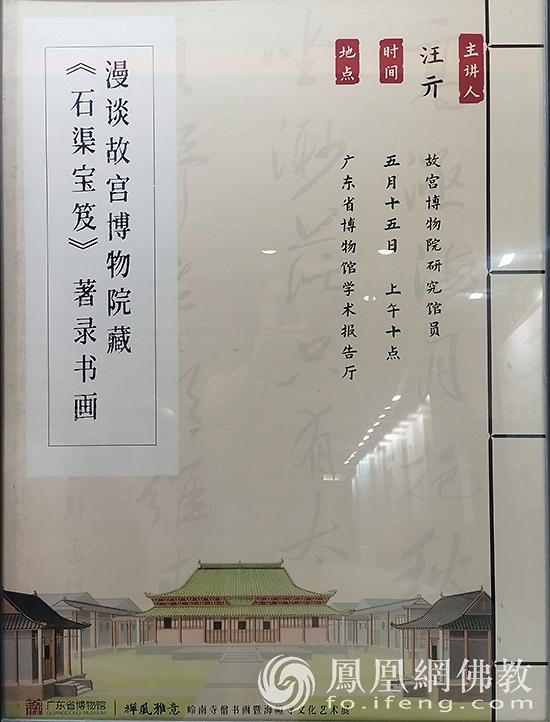 漫谈故宫博物院藏
《石渠宝笈》著录书画
主讲人
汪亓
故宫博物院研究馆员
时间
五月十五日 上午十点
地点
广东省博物馆学术报告厅
广东省博物馆
GUANGDONG MUSEUM
禅风雅意 岭南寺僧书画暨海幢寺文化艺术展
鳳凰網佛教
fo.ifeng.com